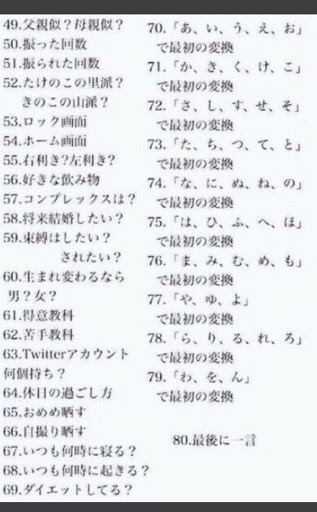 49.父親似？母親似？
50.振った回数
51.振られた回数
52.たけのこの里派？
きのこの山派？
53.ロック画面
54.ホーム画面
55.右利き?左利き?
56.好きな飲み物
57.コンプレックスは？
58.将来結婚したい？
59.束縛はしたい？
されたい？
60.生まれ変わるなら
男？女？
61.得意教科
62.苦手教科
63.Twitterアカウント
何個持ち？
64.休日の過ごし方
65.おめめ晒す
66.自撮り晒す
67.いつも何時に寝る？
68.いつも何時に起きる？
69.ダイエットしてる？
70.「あ、い、う、え、お」
で最初の変換
71.「か、き、く、け、こ」
で最初の変換
72.「さ、し、す、せ、そ」
で最初の変換
73.「た、ち、つ、て、と」
で最初の変換
74.「な、に、ぬ、ね、の」
で最初の変換
75.「は、ひ、ふ、へ、ほ」
で最初の変換
76.「ま、み、む、め、も」
で最初の変換
77.「や、ゆ、よ」
で最初の変換
78.「ら、り、る、れ、ろ」
で最初の変換
79.「わ、を、ん」
で最初の変換
80.最後に一言